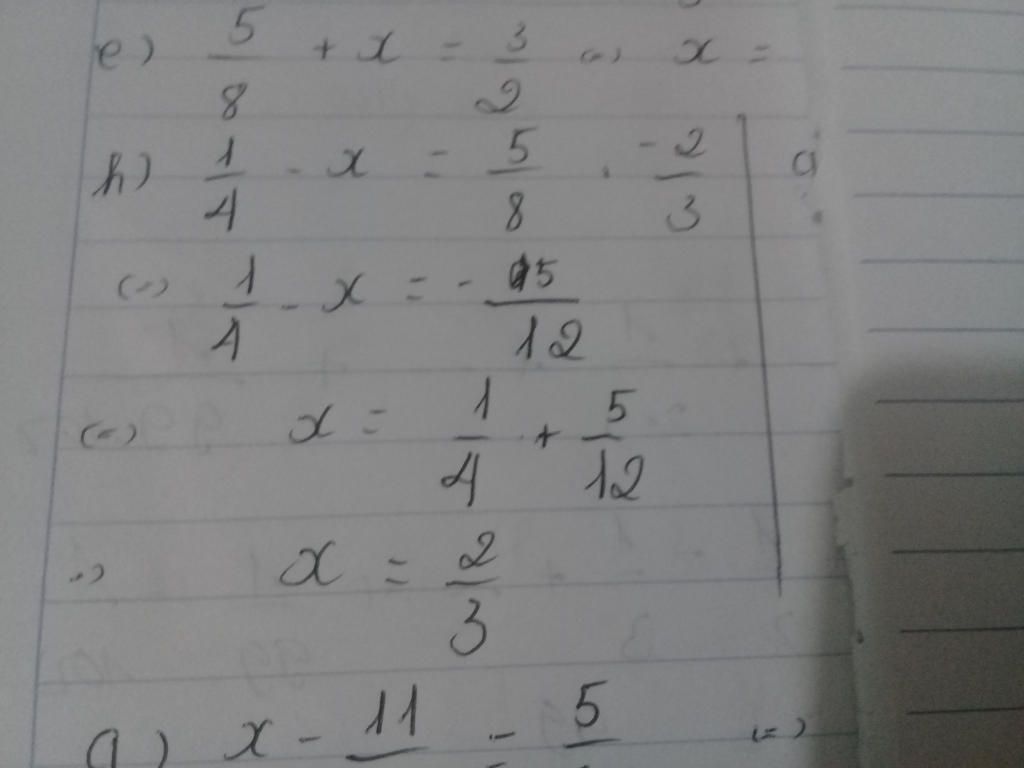 e) 5/8 + x = 3/2 => x =
h) 1/4 - x = 5/8 . -2/3
(=) 1/4 - x = - 5/12
(=) x = 1/4 + 5/12
=) x = 2/3
x - 11 = 5 (=)